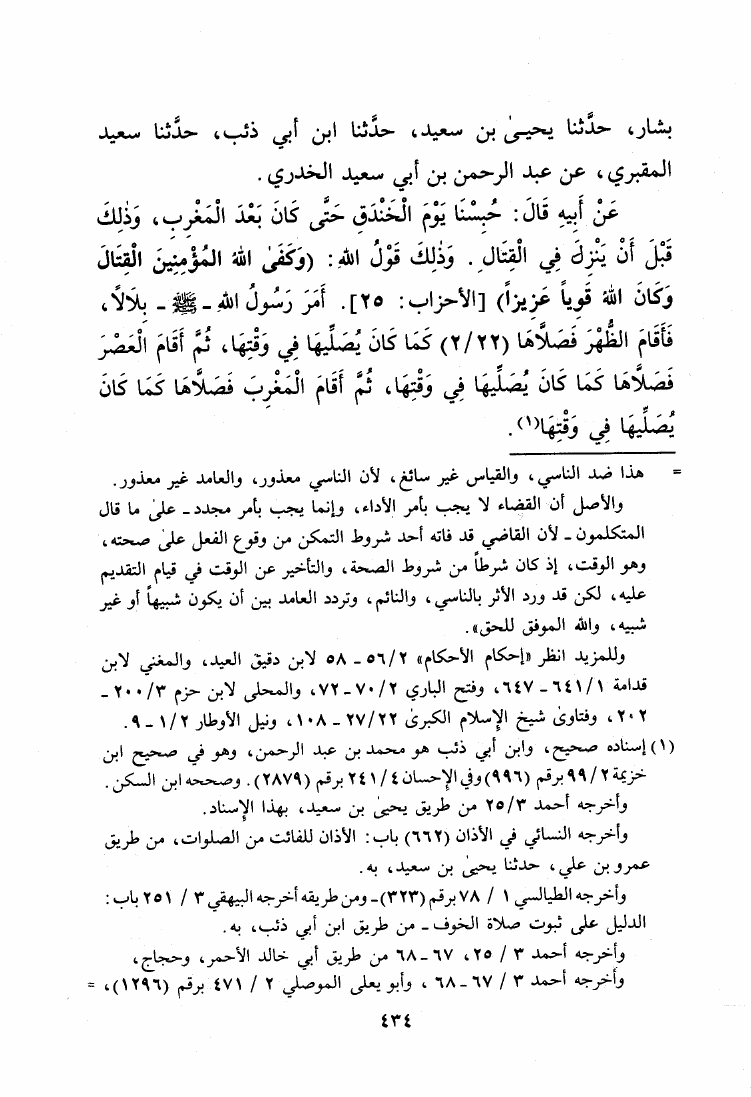 بشار، حدَّثنا يحيىٰ بن سعيد، حدَّثنا ابن أبي ذئب، حدَّثنا سعيد
المقبري، عن عبد الرحمن بن أبي سعيد الخدري.
عَنْ أَبِيهِ قَالَ: حُبِسْنَا يَوْمَ الْخَنْدَقِ حَتَّى كَانَ بَعْدَ الْمَغْرِبِ، وَذٰلِكَ
قَبْلَ أَنْ يَنْزِلَ فِي الْقِتَالِ. وَذٰلِكَ قَوْلُ اللهِ: (وَكَفَىٰ اللهُ المُؤْمِنِينَ الْقِتَالَ
وَكَانَ اللهُ قَوِياً عَزِيزاً) [الأحزاب: ٢٥]. أَمَرَ رَسُولُ اللهِ ـ ﷺ ـ بِلَالًا،
فَأَقَامَ الظُّهْرَ فَصَلَّاهَا (٢/٢٢) كَمَا كَانَ يُصَلِّيهَا فِي وَقْتِهَا، ثُمَّ أَقَامَ الْعَصْرَ
فَصَلَّاهَا كَمَا كَانَ يُصَلِّيهَا فِي وَقْتِهَا، ثُمَّ أَقَامَ الْمَغْرِبَ فَصَلَّاهَا كَمَا كَانَ
يُصَلِّيهَا فِي وَقْتِهَا(١).
= هذا ضد الناسي، والقياس غير سائغ، لأن الناسي معذور، والعامد غير معذور.
والأصل أن القضاء لا يجب بأمر الأداء، وإنما يجب بأمر مجدد ـ علىٰ ما قال
المتكلمون ـ لأن القاضي قد فاته أحد شروط التمكن من وقوع الفعل علىٰ صحته،
وهو الوقت، إذ كان شرطاً من شروط الصحة، والتأخير عن الوقت في قيام التقديم
عليه، لكن قد ورد الأثر بالناسي، والنائم، وتردد العامد بين أن يكون شبيهاً أو غير
شبيه، والله الموفق للحق».
وللمزيد انظر «إحكام الأحكام» ٢/ ٥٦ ـ ٥٨ لابن دقيق العيد، والمغني لابن
قدامة ١/ ٦٤١ ـ ٦٤٧، وفتح الباري ٢/ ٧٠ ـ ٧٢، والمحلى لابن حزم ٣/ ٢٠٠ ـ
٢٠٢، وفتاوىٰ شيخ الإسلام الكبرىٰ ٢٢/ ٢٧ ـ ١٠٨، ونيل الأوطار ٢/ ١ ـ ٩.
(١) إسناده صحيح، وابن أبي ذئب هو محمد بن عبد الرحمن، وهو في صحيح ابن
خزيمة ٢/ ٩٩ برقم (٩٩٦) وفي الإحسان ٤/ ٢٤١ برقم (٢٨٧٩). وصححه ابن السكن.
وأخرجه أحمد ٣/ ٢٥ من طريق يحيىٰ بن سعيد، بهذا الإسناد.
وأخرجه النسائي في الأذان (٦٦٢) باب: الأذان للفائت من الصلوات، من طريق
عمرو بن علي، حدثنا يحيىٰ بن سعيد، به.
وأخرجه الطيالسي ١ / ٧٨ برقم (٣٢٣) ـ ومن طريقه أخرجه البيهقي ٣ / ٢٥١ باب:
الدليل على ثبوت صلاة الخوف ـ من طريق ابن أبي ذئب، به.
وأخرجه أحمد ٣ / ٢٥، ٦٧ ـ ٦٨ من طريق أبي خالد الأحمر، وحجاج،
وأخرجه أحمد ٣ / ٦٧ ـ ٦٨ ، وأبو يعلى الموصلي ٢ / ٤٧١ برقم (١٢٩٦)، =
٤٣٤